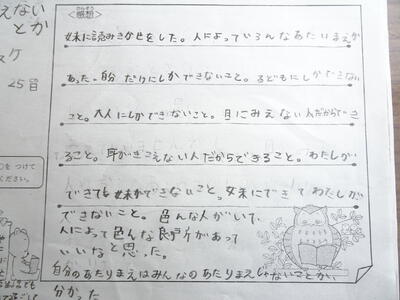 えない
とか
スケ
25日
かんそう
<感想>
妹に読みきかせをした。人によっていろんなあたりまえが
あった。自分だけにしかできないこと。子どもにしかできない
こと。大人にしかできないこと。目にみえない人だからでき
ること。耳がきこえない人だからできること。わたしが
できても妹ができないこと。妹にできてわたしが
できないこと。色んな人がいて、
人によって色んな良さがあって
いいなと思った。
自分のあたりまえはみんなのあたりまえじゃないことが、
分かった
をつけて
ください。